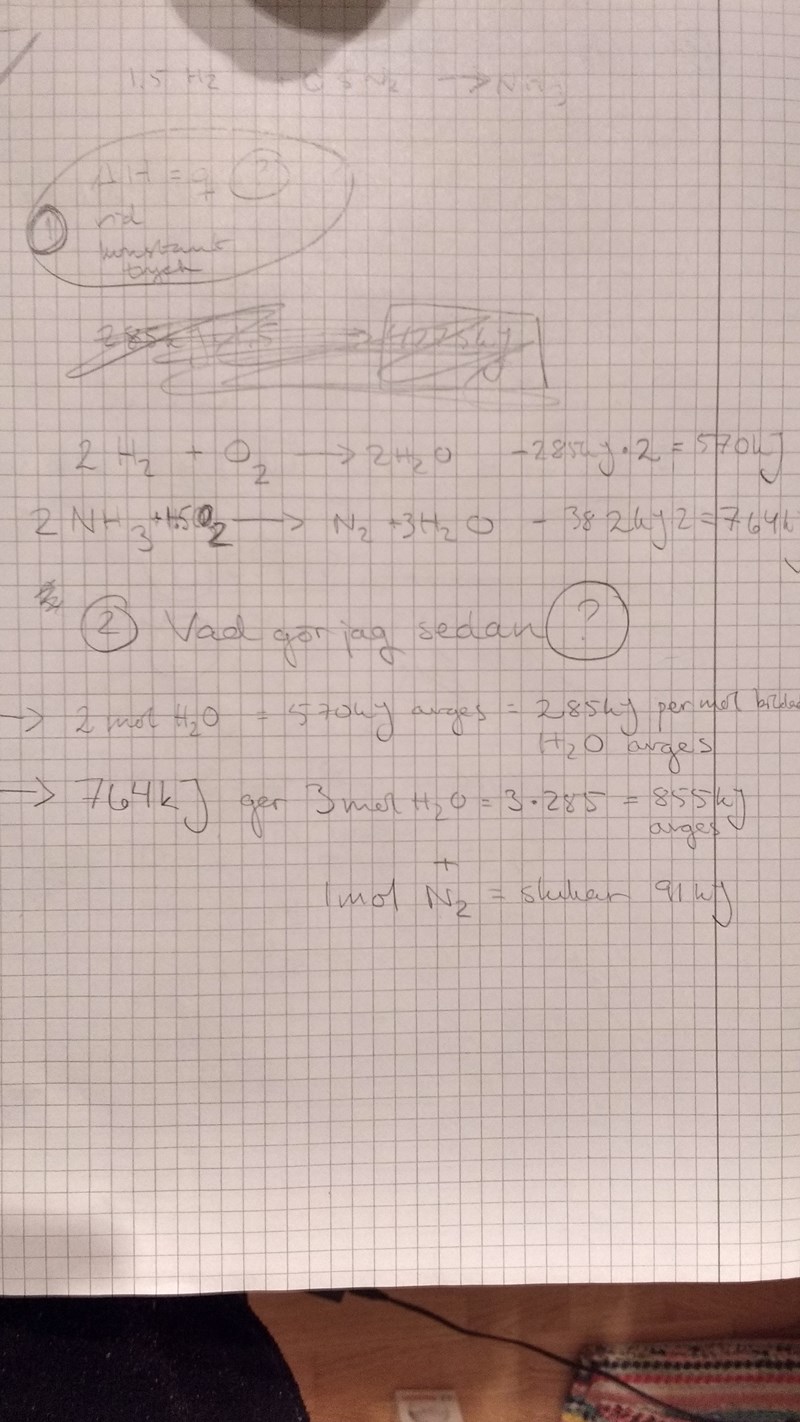 1,5 H2 + 0,5 N2 → NH3
ΔH = ?
① vid
konstant
tryck
2 H2 + O2 → 2H2O -285kJ·2 = 570kJ
2 NH3 +1.5O2 → N2 +3H2O - 382kJ 2 = 764k
② Vad gör jag sedan ?
→ 2 mol H2O = 570kJ avges = 285kJ per mol bildad
H2O avges
→ 764kJ ger 3 mol H2O = 3·285 = 855kJ
avges
+
1mol N2 = slukar 91 kJ